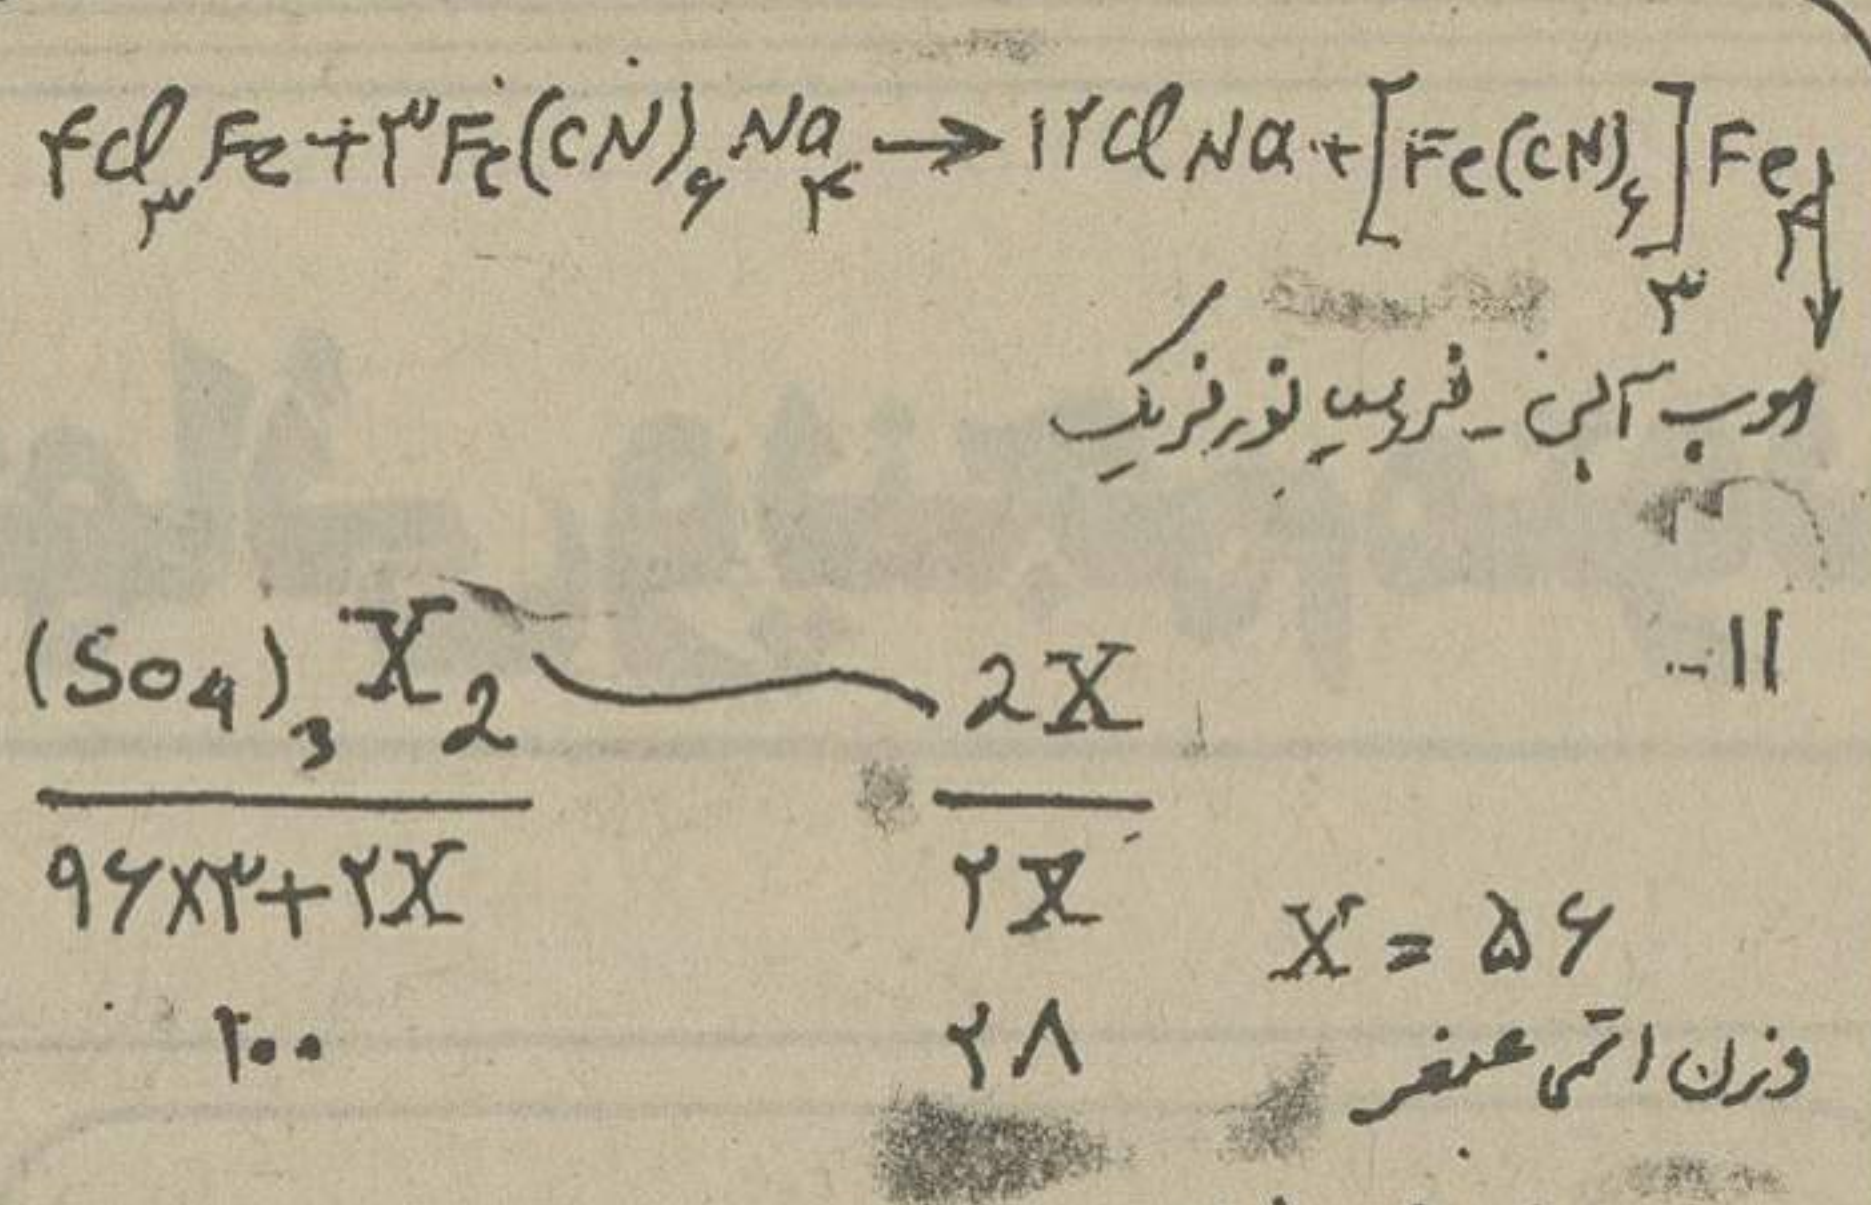 ۴Cl۳Fe+۳Fe(CN)۶Na۴→۱۲ClNa+[Fe(CN)۶]۳Fe۴
رسوب آبی - فروسیانور فریک
۱۱-
(SO4)3X2 2X
۹۶×۳+۲X ۲X
X = ۵۶
۲۰۰ ۲۸
وزن اتمی عنصر